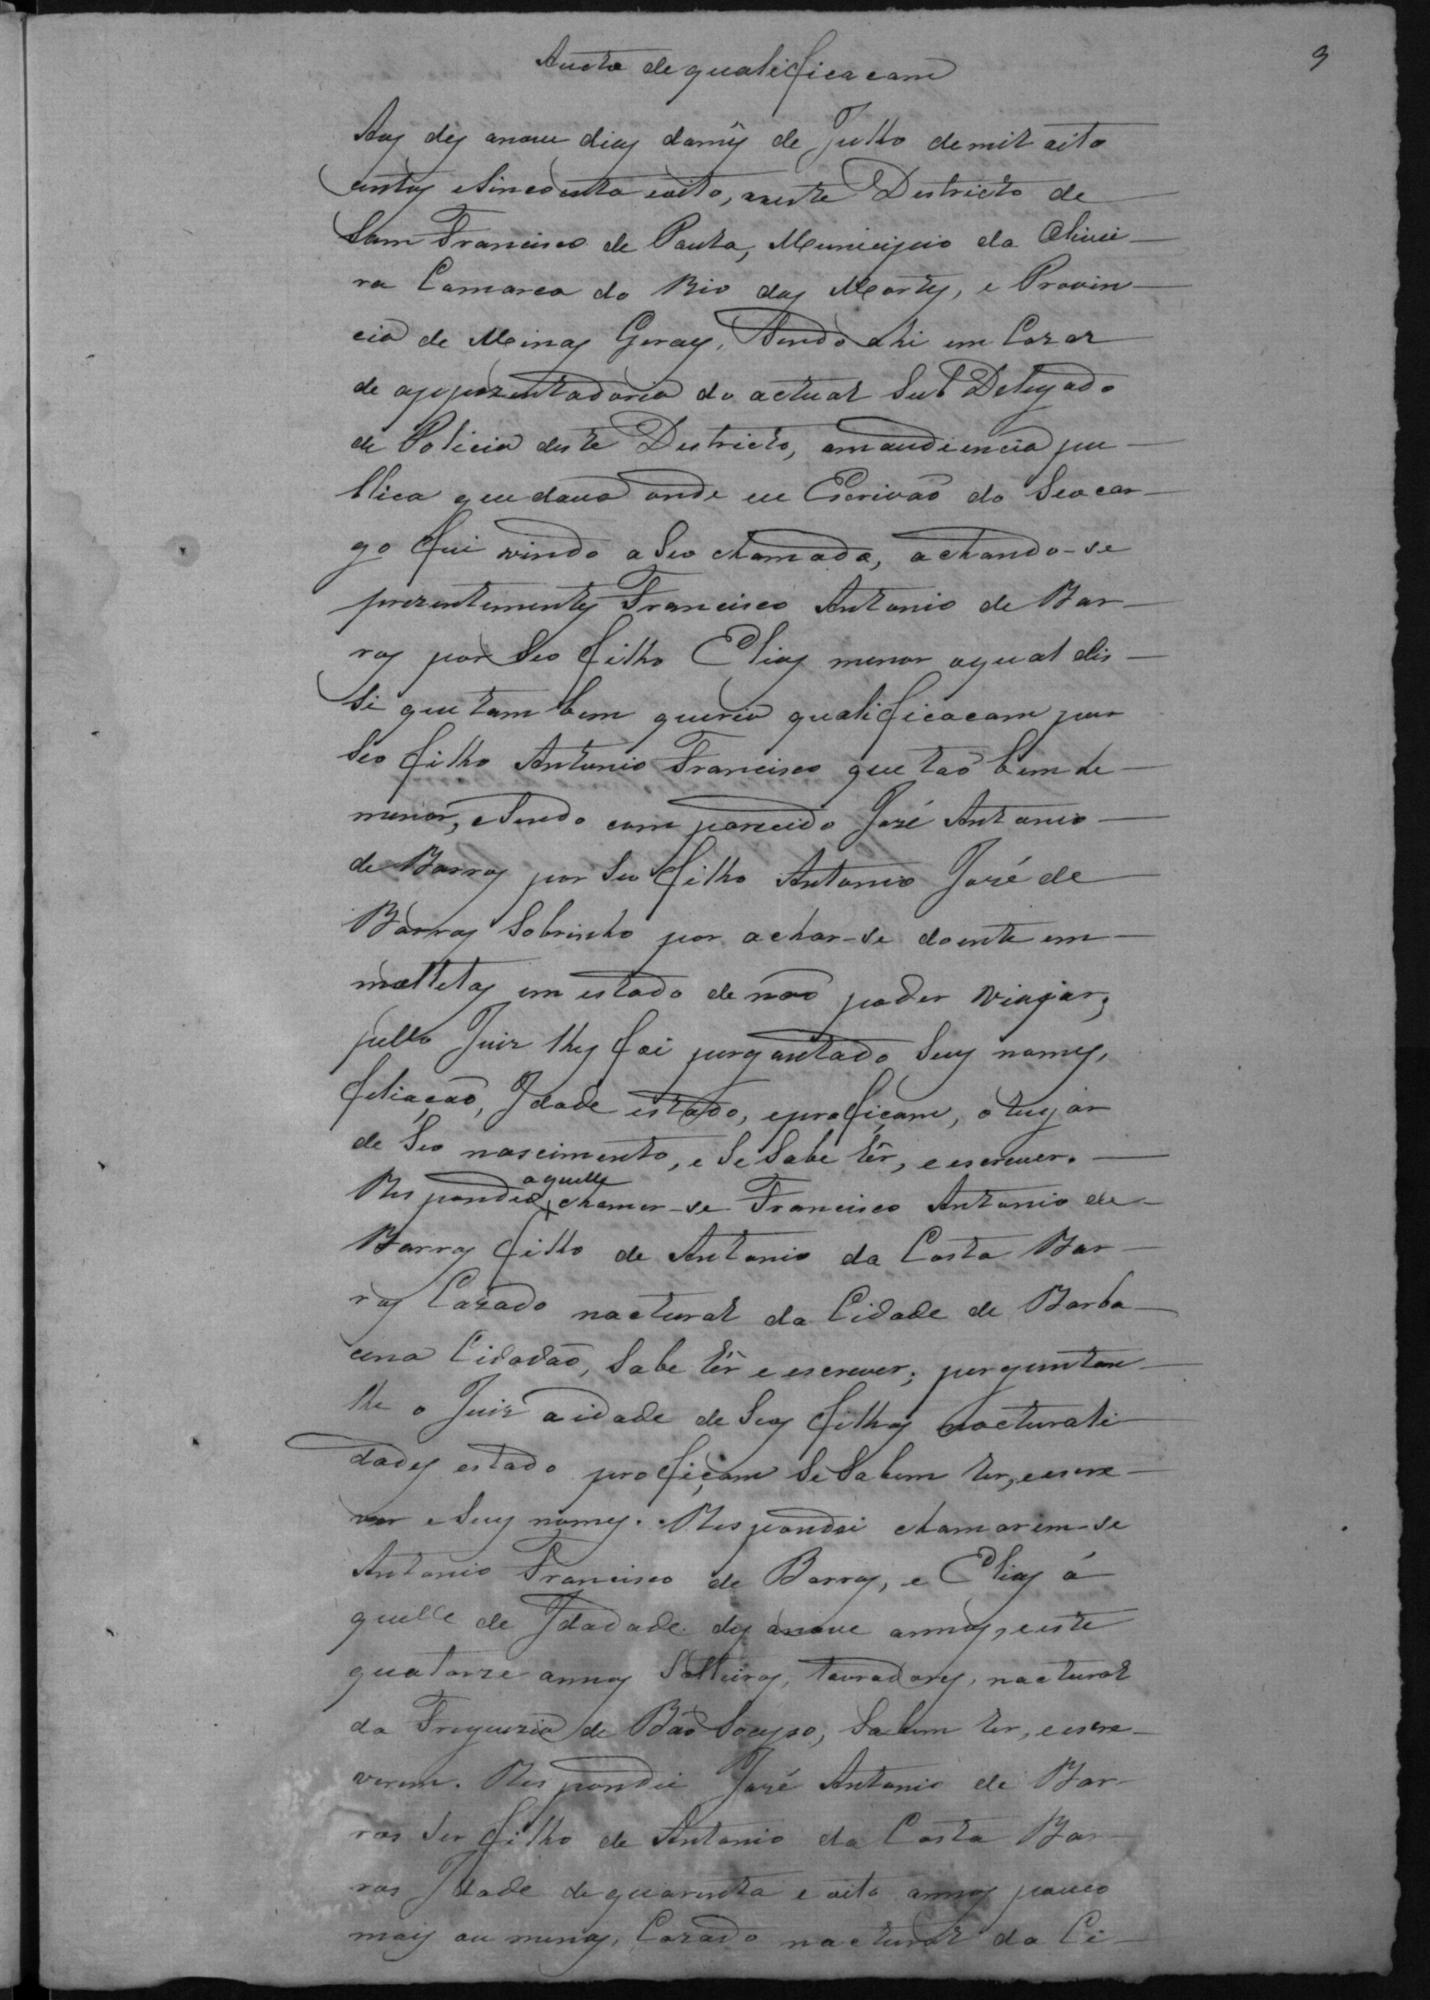 9
Aucto de qualificacam
Aos des anove dias do mês de Julho de mil oito
centos e Sincoenta eoito, neste Districto de
Sam Francisco de Paula, Municipio da Olivei-
ra Comarca do Rio das Mortes, e Provin-
cia de Minas Geraes, Sendo ahi em Cazas
de appozentadoria do actual Sub Delegado
de Policia deste Districto, em audiencia pu-
blica que dava onde eu Escrivaõ do Seo car-
go fui vindo a Seo chamado, achando-se
prezentemente Francisco Antonio de Bar-
ros por Seo filho Elias menor o qual dis-
se que tam bem queria qualificacam por
Seo filho Antonio Francisco que taõ bem he
menor, e Sendo com parecido José Antonio
de Barros por Seo filho Antonio José de
Barros Sobrinho por achar-se doente em
molletas em estado de naõ poder viajar;
pello Juiz lhes foi perguntado Seus nomes,
filiaçaõ, Idade estado, eproficçam, o lugar
de Seo nascimento, e Se Sabe lêr, e escrever.
Respondeo aquelle chamar-se Francisco Antonio de
Barros filho de Antonio da Costa Bar-
ros Cazado nactural da Cidade de Barba-
cena Cidadaõ, Sabe lêr e escrever; perguntou
lhe o Juiz a idade de Seus filhos nacturali-
dades estado proficçam Se Sabem ler, e escre-
ver e Seus nomes. Respondeo chamarem-se
Antonio Francisco de Barros, e Elias á
quelle de Idadade des anove annos, e este
quatorze annos Solteiros, lavradores, nactural
da Freguezia de Bão Soceço, Sabem ler, e escre-
verem. Respondeo José Antonio de Bar-
ros Ser filho de Antonio da Costa Bar-
ros Idade de quarenta e oito annos pouco
mais ou menos, Cazado nactural da Ci-